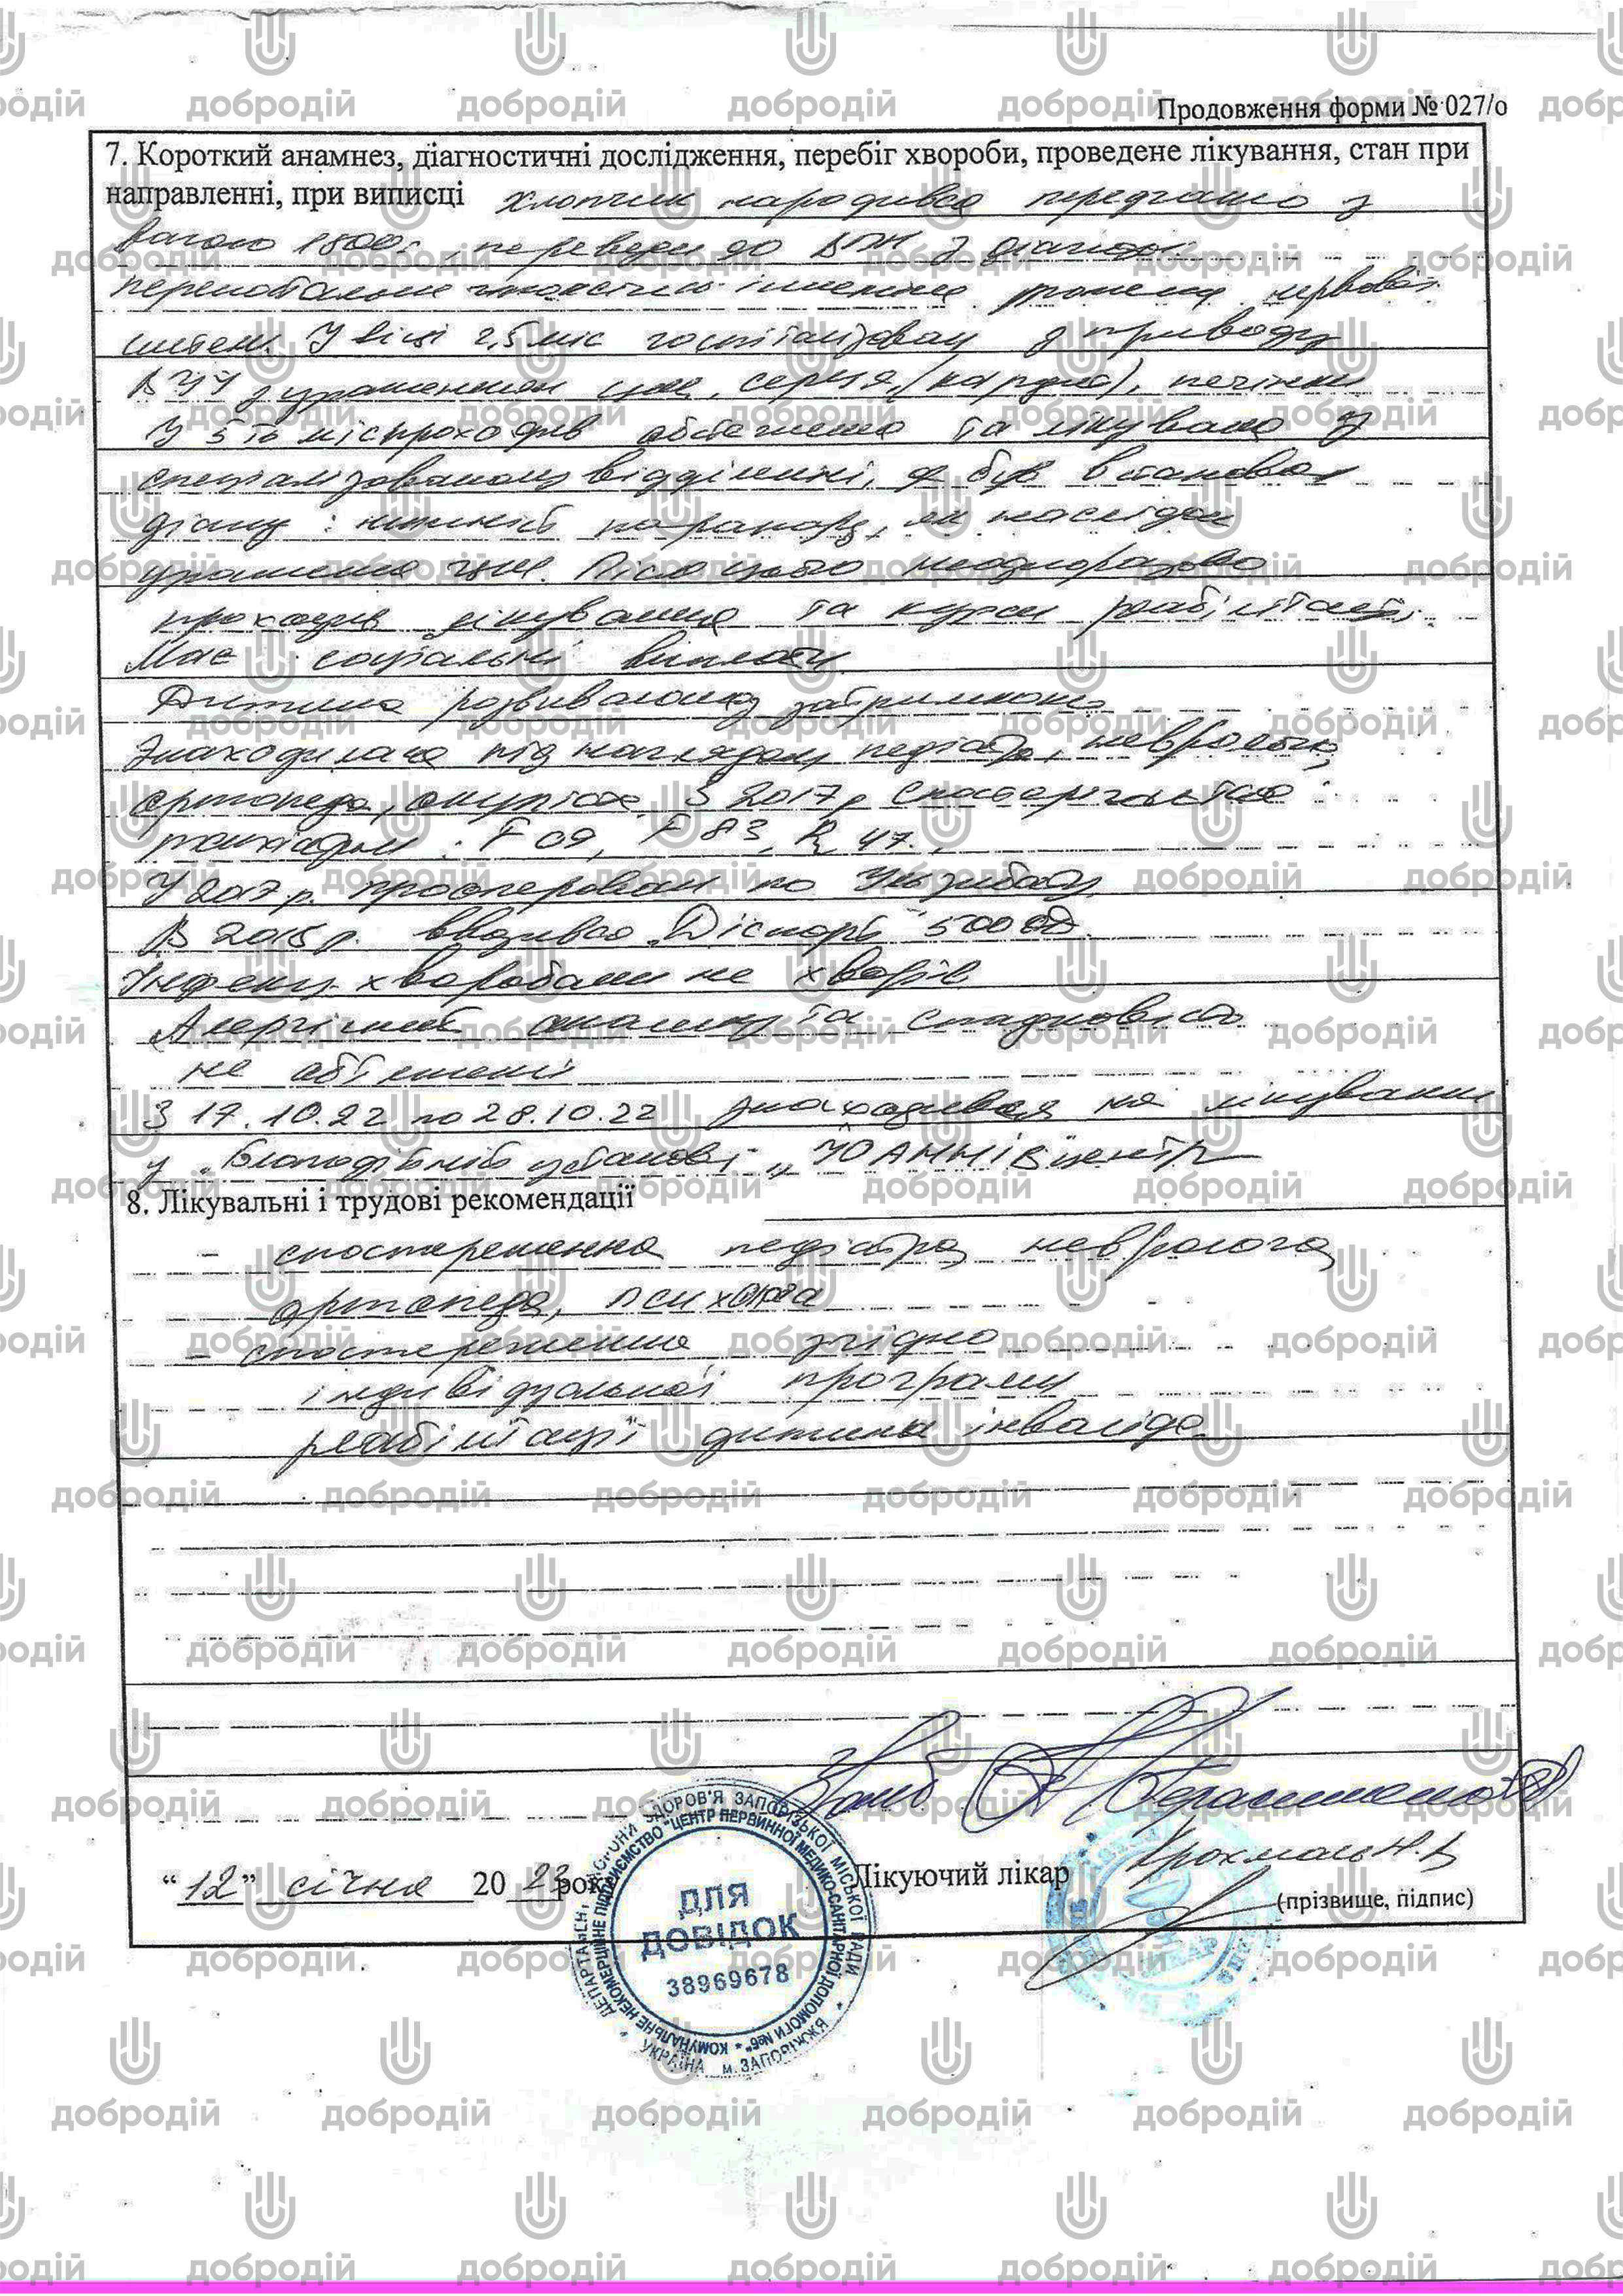 Продовження форми № 027/о
7. Короткий анамнез, діагностичні дослідження, перебіг хвороби, проведене лікування, стан при
направленні, при виписці хлопчик народився передчасно з
вагою 1800г, переведен до ВПН з діагнозом:
перенатальне ураження нервової
систем. У віці 2,5 міс госпіталізован з приводу
ВУІ з ураженням цнс, серця (кардит), печінки
У 5 ть міс проходив обстеження та лікування у
спеціалізованому відділенні, де був встановлен
діагноз: нижній парапарез, як наслідок
ураження цнс. Після цього неодноразово
проходив лікування та курси реабілітації.
Має соціальні виплати
Дитина розвивалась з затримкою
Знаходилася під наглядом педіатра, невролога,
ортопеда, окуліста. З 2017р спостерігається
психіатром: F 09, F 83, R 47.
У 2017р. прооперован по
В 2015р. вводився "Діспорт" 500 ОД
Інфекц. хворобами не хворів
Алергічний анамнез та спадковість
не обтяжені
З 17.10.22 по 28.10.22 знаходився на лікуванні
у "Благодійній установі" "ЮАННІВ центр
8. Лікувальні і трудові рекомендації
- спостереження педіатра, невролога
ортопеда, психіатра
- спостереження згідно
індивідуальної програми
реабілітації дитини інваліда.
"12" січня 2023 року
Лікуючий лікар Крохмаль Н.В
(прізвище, підпис)
ДЕПАРТАМЕНТ ОХОРОНИ ЗДОРОВ'Я ЗАПОРІЗЬКОЇ МІСЬКОЇ РАДИ
КОМУНАЛЬНЕ НЕКОМЕРЦІЙНЕ ПІДПРИЄМСТВО "ЦЕНТР ПЕРВИННОЇ МЕДИКО-САНІТАРНОЇ ДОПОМОГИ №6"
ДЛЯ
ДОВІДОК
38969678
УКРАЇНА м. ЗАПОРІЖЖЯ
добродій